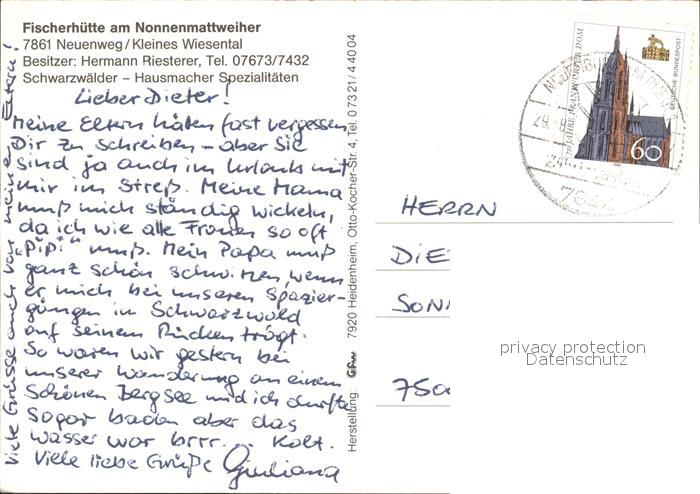 Fischerhütte am Nonnenmattweiher
7861 Neuenweg/Kleines Wiesental
Besitzer: Hermann Riesterer, Tel. 07673/7432
Schwarzwälder – Hausmacher Spezialitäten
Lieber Dieter!
Meine Eltern hätten fast vergessen,
Dir zu schreiben – aber sie
sind ja auch im Urlaub mit
mir im Streß. Meine Mama
muß mich ständig wickeln,
da ich wie alle Frauen so oft
"Pipi" muß. Mein Papa muß
ganz schön schwitzen, wenn
er mich bei unseren Spazier-
gängen im Schwarzwald
auf seinem Rücken trägt.
So waren wir gestern bei
unserer Wanderung an einem
schönen Bergsee und ich durfte
sogar baden aber das
Wasser war brrr... kalt.
Viele liebe Grüße Giuliana
Viele Grüsse auch von meinen Eltern!
Herstellung: 7920 Heidenheim, Otto-Kocher-Str. 4, Tel. 07321/44004
JAHRE FRANKFURTER DOM
DEUTSCHE BUNDESPOST
60
7844
HERRN
DIE
SON
750
privacy protection
Datenschutz